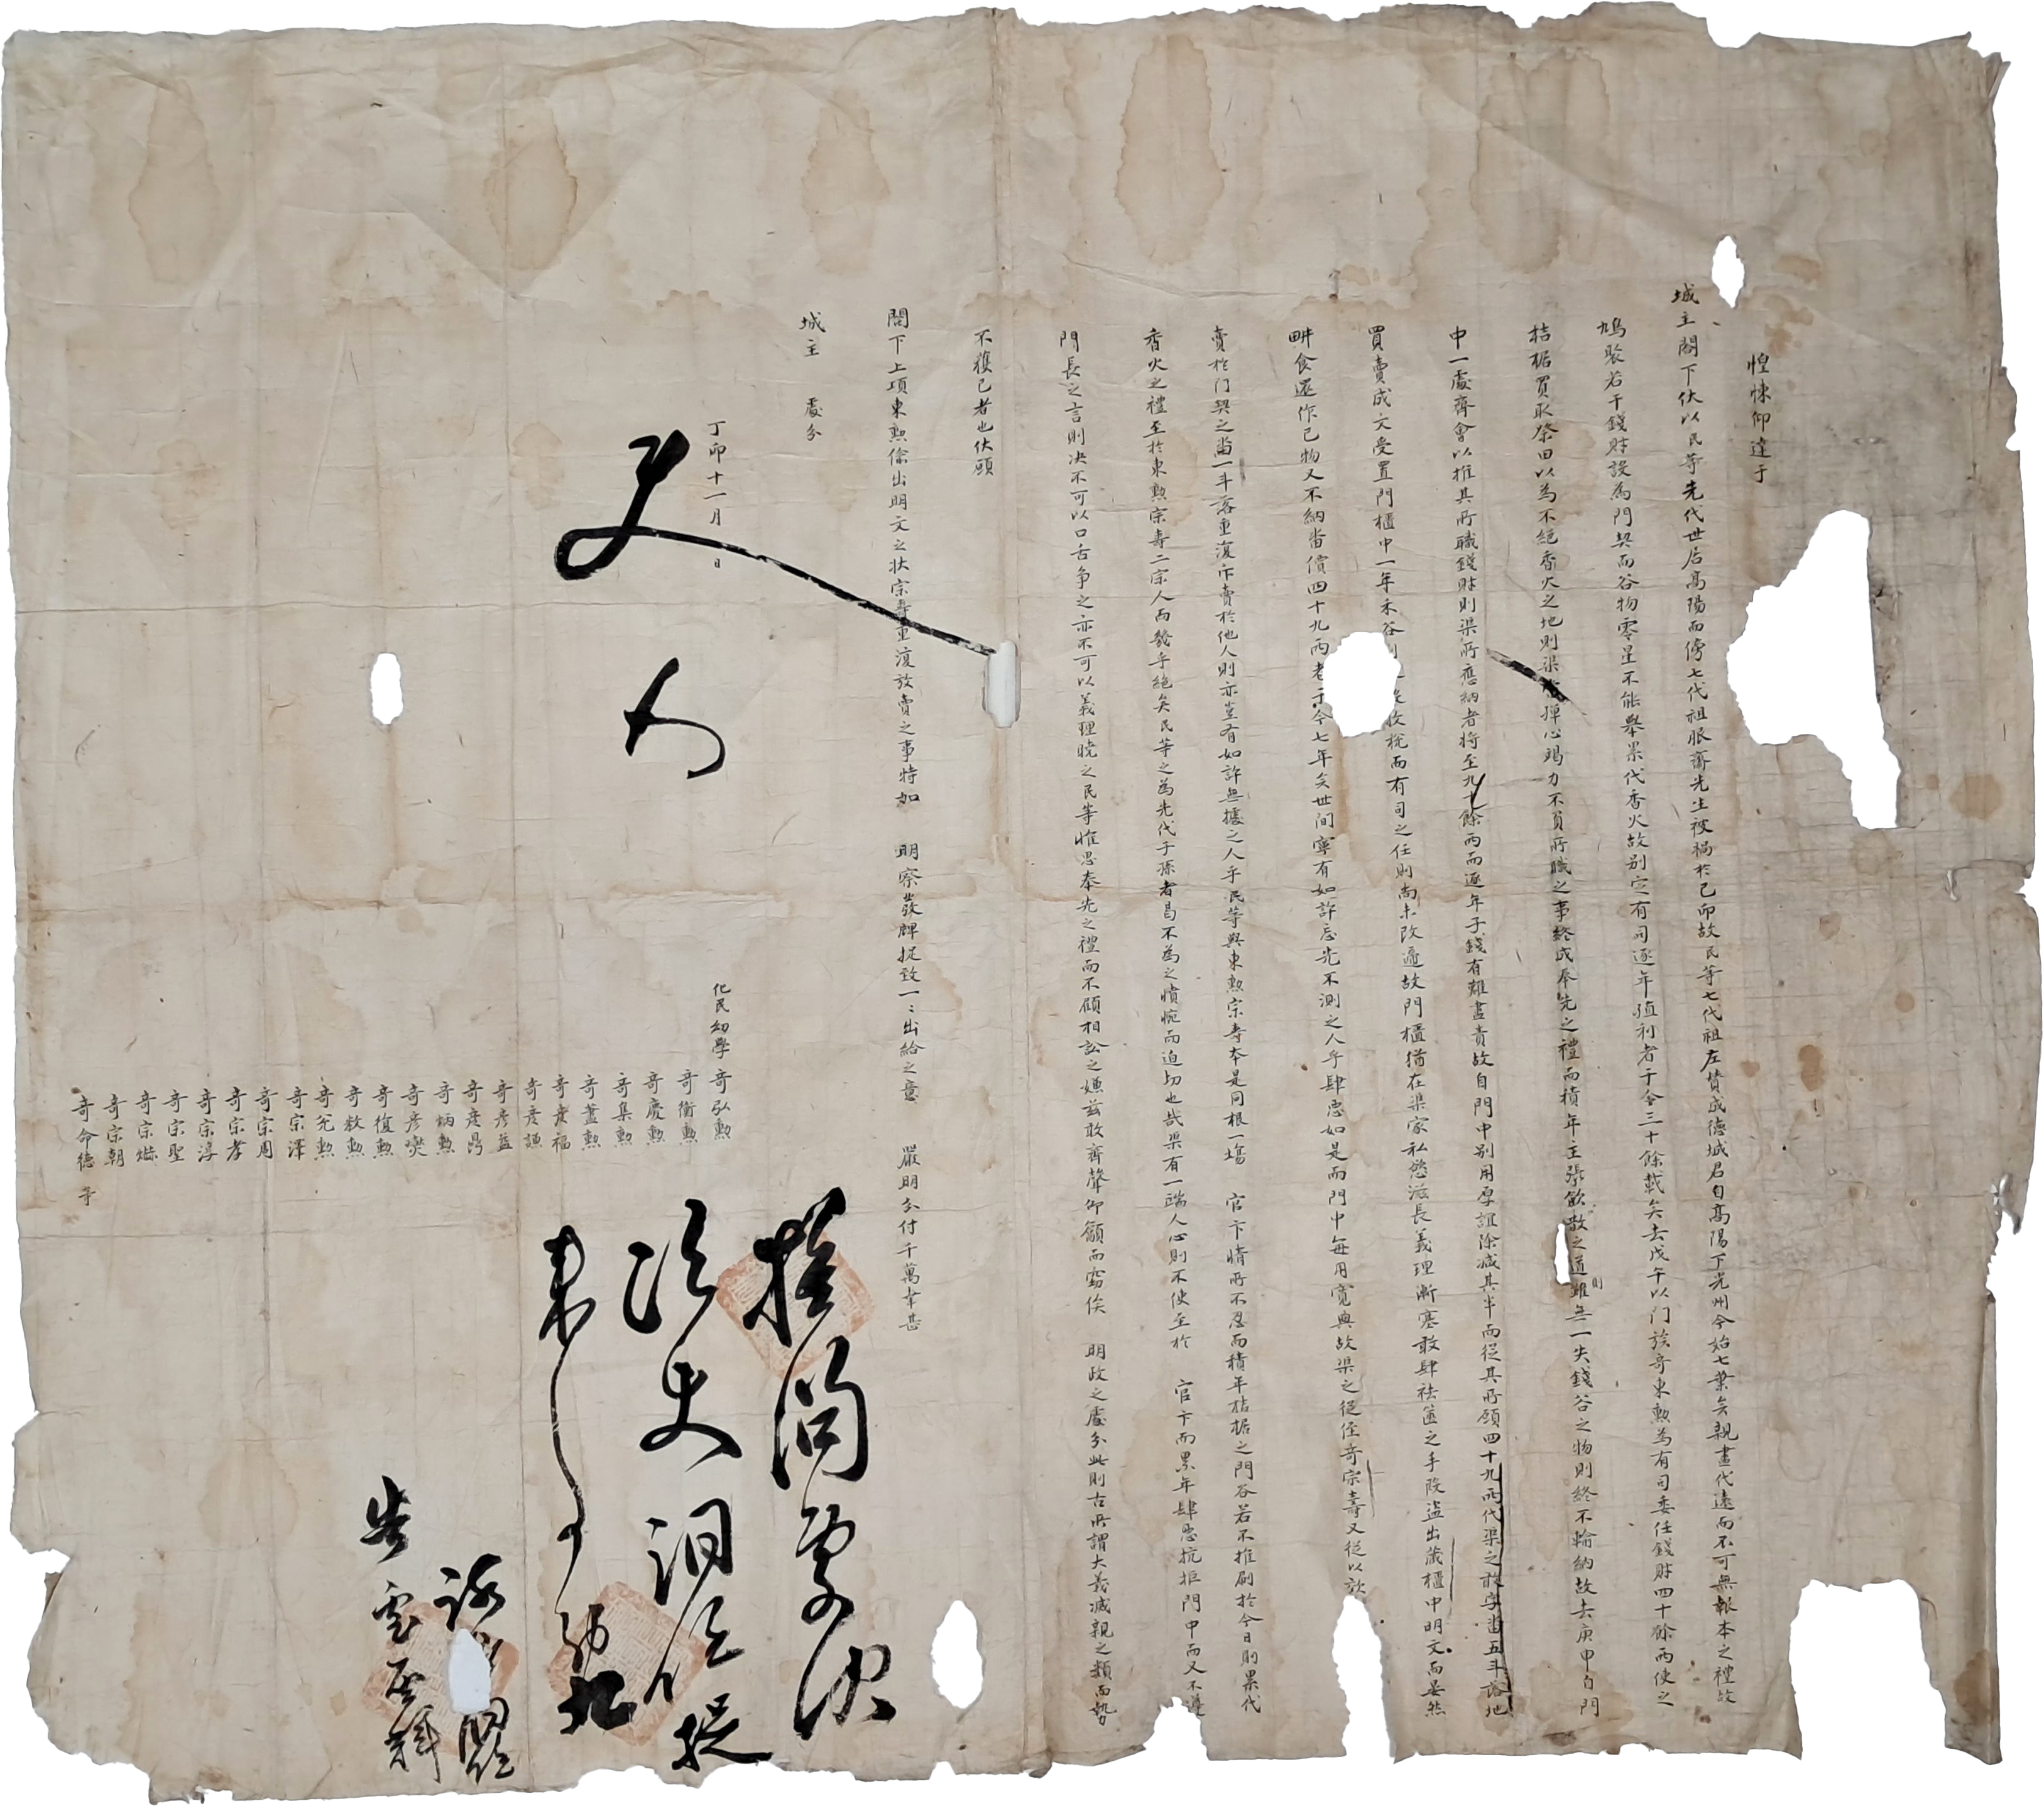 惶悚仰達于
城主閤下伏以民等先代世居高陽而傍七代祖服齋先生被禍於己卯故民等七代祖左贊成德城君自高陽下光州今始七葉矣親盡代遠而不可無報本之禮故
鳩聚若干錢財設爲門契而谷物零星不能擧累代香火故別定有司逐年殖利者于今三十餘載矣去戊午以门族奇東勲爲有司委任錢財四十餘兩使之
拮据買取祭田以爲不絕香火之地則渠 殫心竭力不負所職之事終成奉先之禮而積年主張飲散之道雖無一失錢谷之物則終不輸納故去庚申自門
則
中一處齊會以推其所職錢財則渠所應納者將至九十餘兩而逐年子錢有難盡責故自門中別用厚誼除減其半而從其所願四十九兩代渠之敢字畓五斗落地
買賣成文受置門櫃中一年禾谷 收稅而有司之任則尙未改遞故門櫃猶在渠家私慾滋長義理漸塞敢肆祛篋之手段盜出藏櫃中明文而晏然
畊食還作己物又不納畓價四十九兩者于今七年矣世间寧有如許忘先不測之人乎肆惡如是而門中每用寬典故渠之從侄奇宗壽又從以
賣於门契之畓一斗落重復斥賣於他人則亦豈有如許無據之人乎民等與東勲宗壽本是同根一塲 官卞情所不忍而積年拮据之門谷若不推刷於今日則累代
香火之禮至於東勲宗壽二宗人而幾乎絕矣民等之爲先代子孫者曷不爲之憤惋而迫切也哉渠有一端人心則不使至於 官卞而累年肆惡抗拒門中而又不遵
門長之言則决不可以口舌争之亦不可以義理曉之民等惟思奉先之禮而不顧相訟之嫌玆敢齊聲仰籲而竊俟 明政之處分此則古所謂大義滅親之類而勢
不獲已者也伏願
閤下上項東勲偸出明文之狀宗壽重復放賣之事特如 明察發牌捉致一一出給之意 嚴明分付千萬幸甚
城主 處分
丁卯十一月 日
化民幼學 奇弘勲
奇衡勲
奇慶勲
奇集勲
奇蓋勲
奇彦福
奇彦謙
奇彦益
奇彦鼎
奇炳勲
奇彦爕
奇復勲
奇敎勲
奇允勲
奇宗澤
奇宗周
奇宗孝
奇宗淳
奇宗聖
奇宗爀
奇宗朝
奇命德 等
推问處決
次史詞伩捉
來事
告